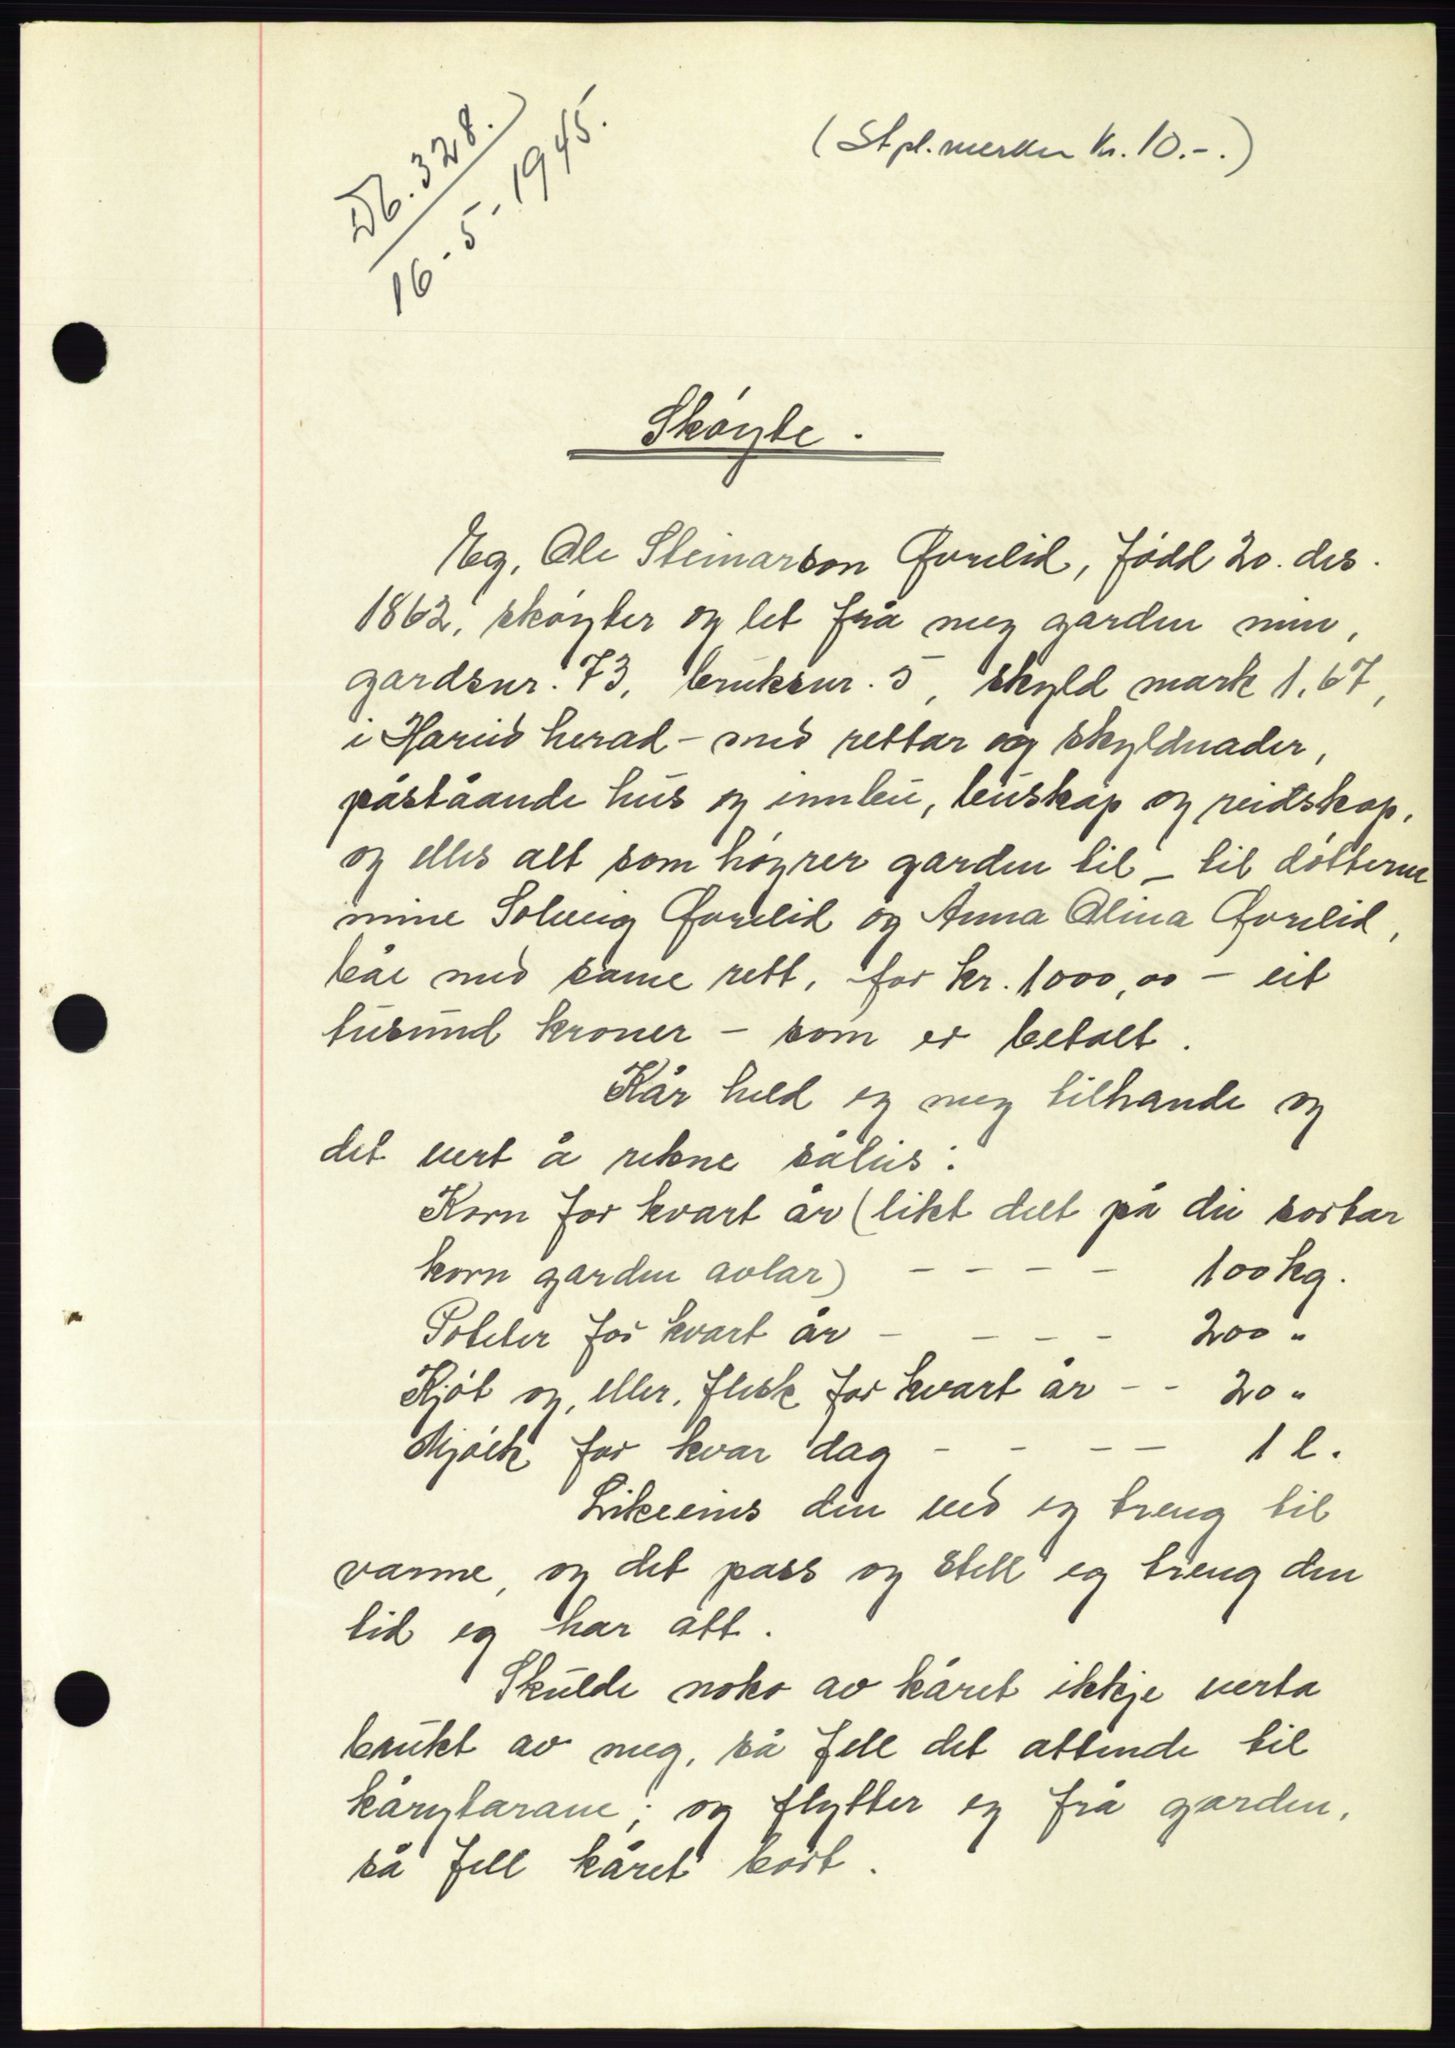 Db. 328.
16-5-1945.
(Stpl.merker kr. 10.-.)
Skøyte.
Eg, Ole Steinarson Øvrelid, fødd 20. des.
1862, skøyter og let frå meg garden min,
gardsnr. 73, bruksnr. 5, skyld mark 1,67,
i Hareid herad - med rettar og skyldnader,
påståande hus og innbu, buskap og reidskap,
og elles alt som høyrer garden til - til døtterne
mine Solveig Øvrelid og Anna Olina Øvrelid,
båe med same rett, for kr. 1000,00 - eit
tusund kroner - som er betalt.
Kår held eg meg tilhande og
det vert å rekne såleis:
Korn for kvart år (likt delt på dei sortar
korn garden avlar) - - - - 100 kg.
Poteter for kvart år - - - - 200 "
Kjøt og, eller, flesk for kvart år - - 20 "
Mjølk for kvar dag - - - - 1 l.
Likeeins den ved eg treng til
varme, og det pass og stell eg treng den
tid eg har att.
Skulde noko av kåret ikkje verta
brukt av meg, så fell det attende til
kårytarane; og flytter eg frå garden,
så fell kåret bort.